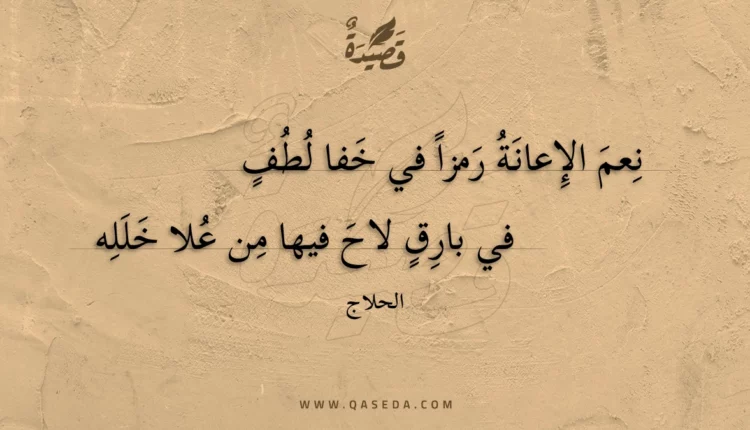 قَصِيدَةٌ
نِعمَ الإِعانَةُ رَمزاً في خَفا لُطُفٍ
في بارِقٍ لاحَ فيها مِن عُلا خَلَلِه
الحلاج
WWW.QASEDA.COM